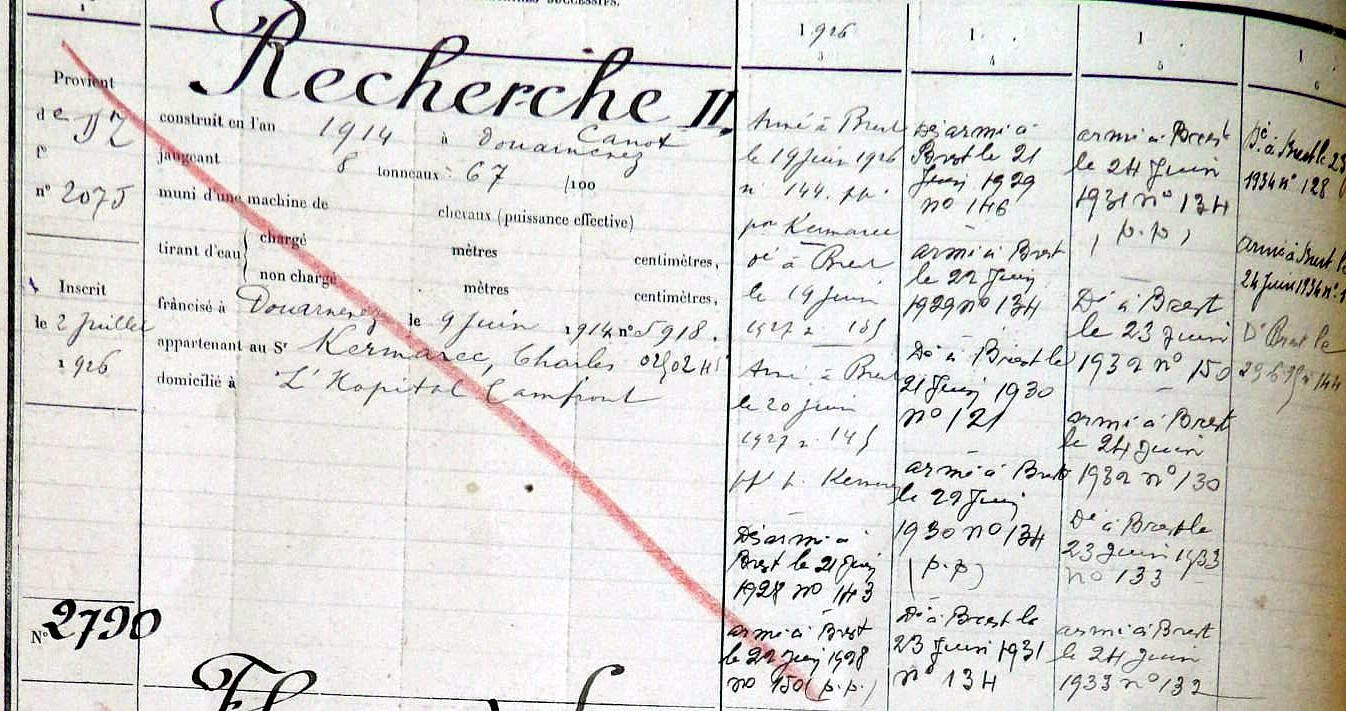 1
Provient
de DZ
f°
n° 2075
Inscrit
le 2 Juillet
1926
N° 2790
Recherche II.
construit en l'an 1914 à Douarnenez Canot
jaugeant 8 tonneaux 67 /100
muni d'une machine de
chevaux (puissance effective)
tirant d'eau
chargé mètres centimètres,
non chargé mètres centimètres,
francisé à Douarnenez le 9 Juin 1914 n° 5918.
appartenant au Sr Kermarec, Charles
domicilié à L'Hopital Camfrout
1926
3
Armé à Brest
le 19 Juin 1926
n° 144. pp.
par Kermarec
Dé à Brest
le 19 Juin
1927 n° 105
Armé à Brest
le 20 Juin
1927 n° 145
Désarmé à
Brest le 21 Juin
1928 n° 143
armé à Brest
le 22 Juin 1928
no 150 (p.p.)
1
4
Désarmé à
Brest le 21
Juin 1929
n° 146
armé à Brest
le 22 Juin
1929 n° 134
Dé à Brest le
21 Juin 1930
n° 121
armé à Brest
le 22 Juin
1930 n° 134
(p.p)
Dé à Brest le
23 Juin 1931
n° 134
1
5
armé à Brest
le 24 Juin
1931 n° 134
(p.p)
Dé à Brest
le 23 Juin
1932 n° 150
armé à Brest
le 24 Juin
1932 n° 130
Dé à Brest le
23 Juin 1933
n° 133
armé à Brest
le 24 Juin
1933 n° 132
1
6
Dé à Brest le 23
1934 n° 128
armé à Brest le
24 Juin 1934 n°
Dé Brest le